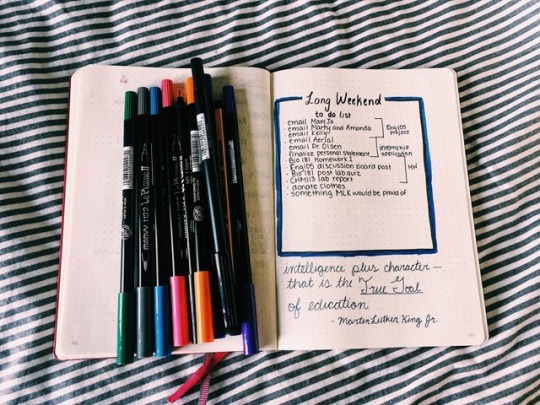 Long Weekend
to do list
- email Mary Jo
- email Marty and Amanda
- email Kelly
- email Aerial
- email Dr. Olsen
- finalize personal statement
- Bio 181 Homework 1
- Eng105 discussion board post
- Bio 181 post lab quiz
- CHM113 lab report
- donate clothes
- something MLK would be proud of
Eng105
project
internship
application
HW
intelligence plus character —
that is the True Goal
of education
- Martin Luther King Jr.
marvy 1122 Le Plume II